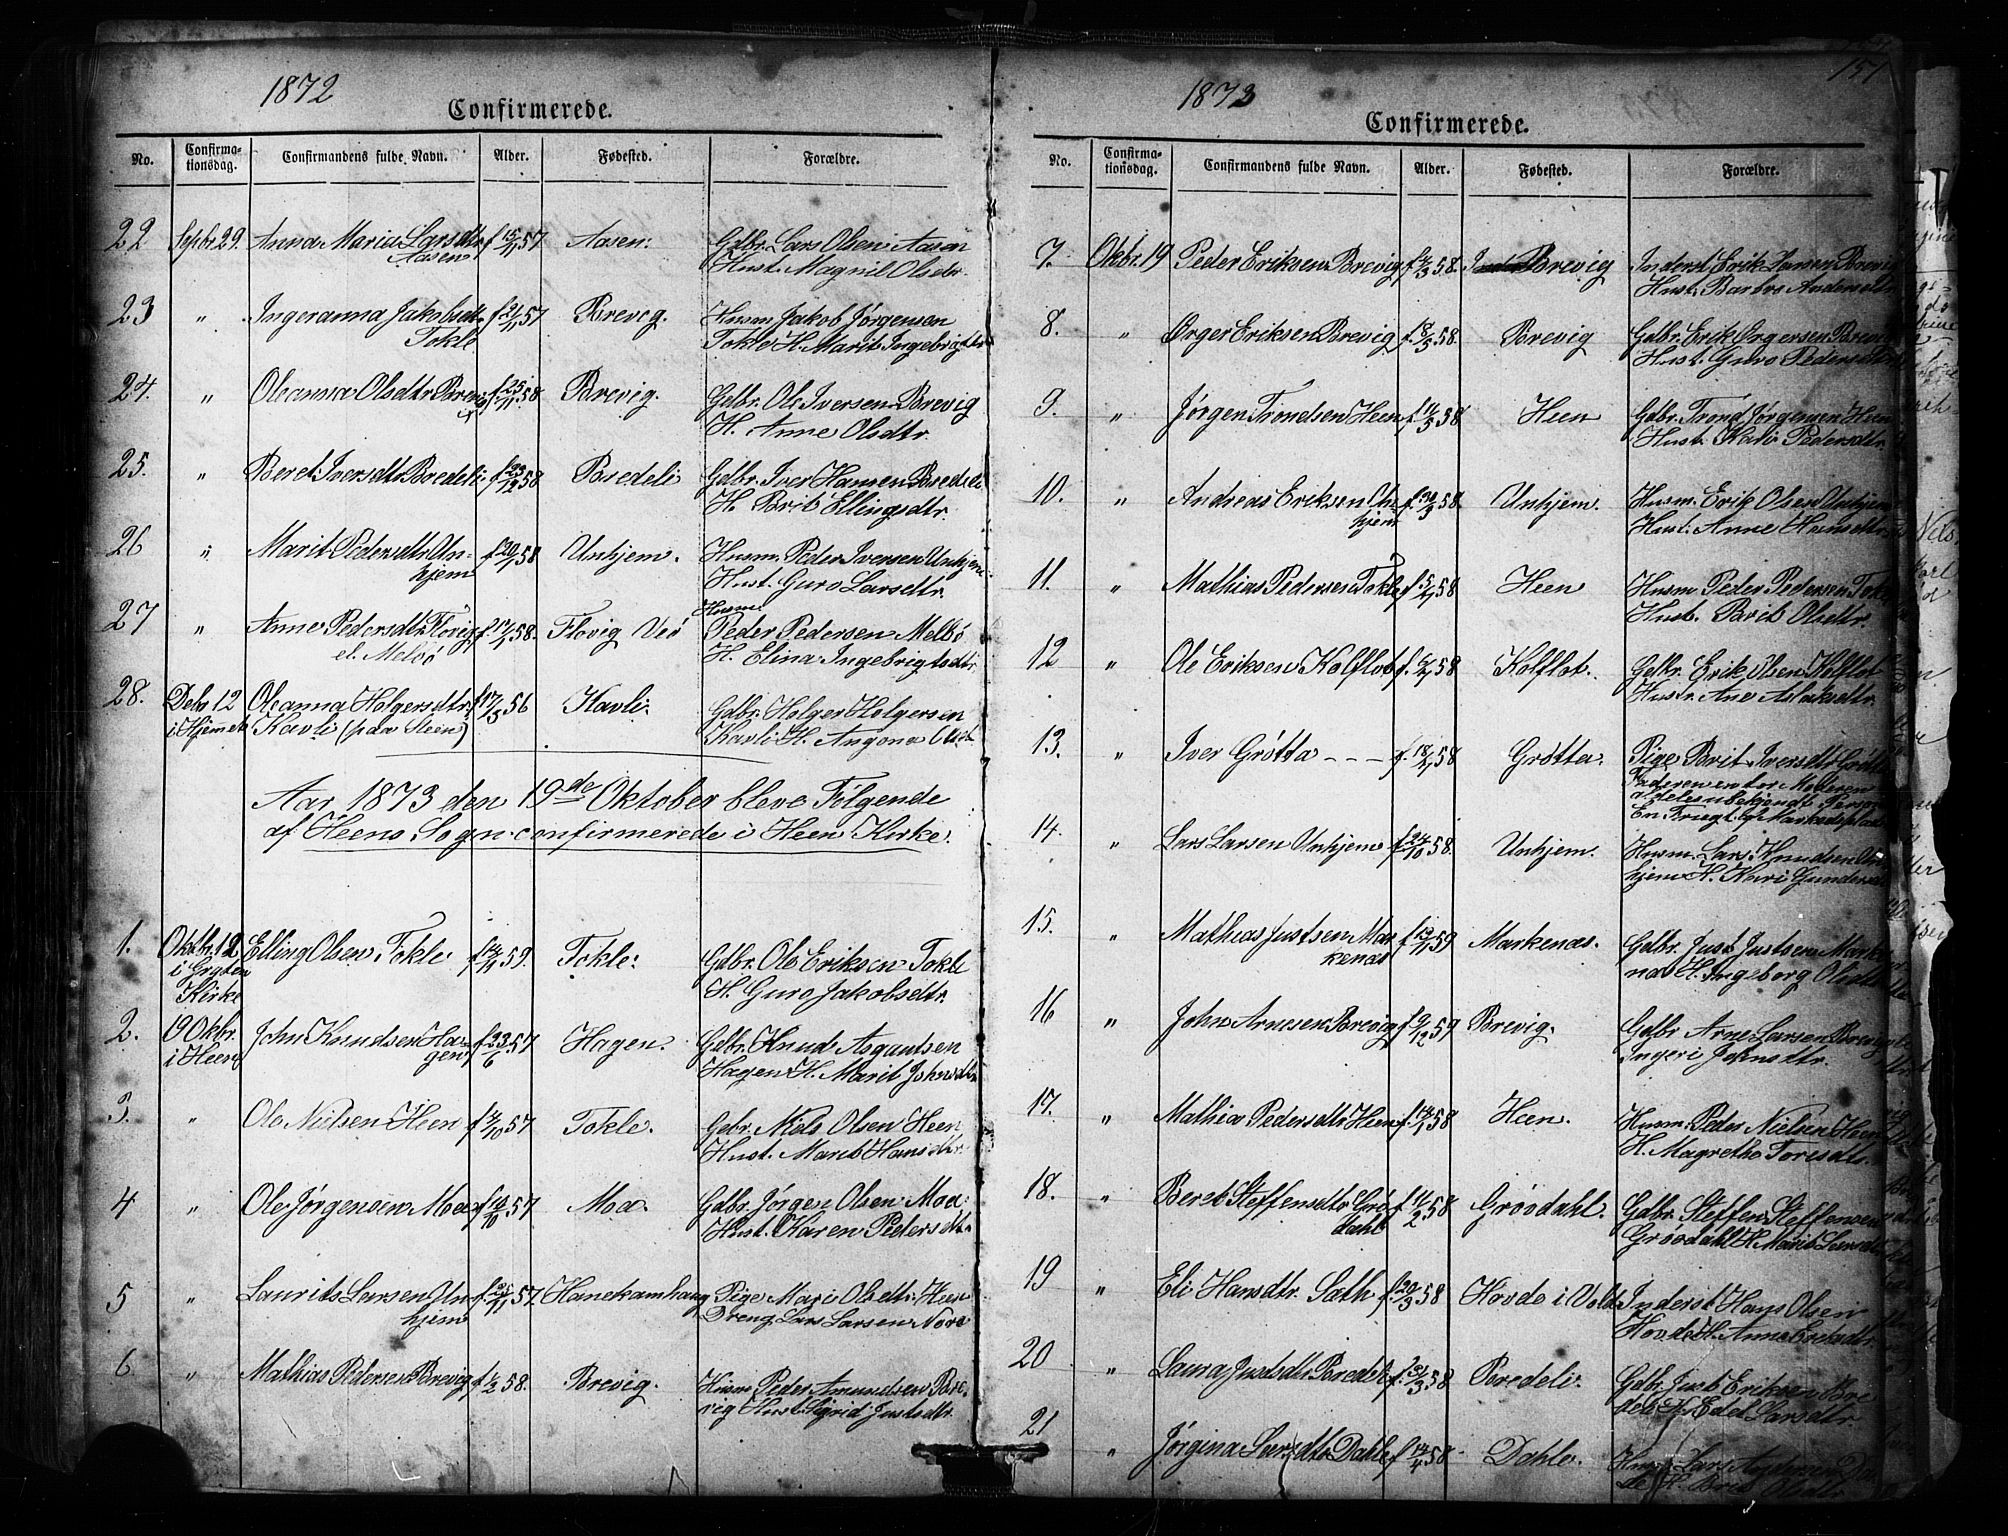 1872
Confirmerede.
No. Confirma-tionsdag. Confirmandens fulde Navn. Alder. Fødested. Forældre.
22 Septbr 29. Anna Maria Larsdtr f 57 Aasen: Gdbr. Lars Olsen Aasen
Aasen Hust. Magnil Olsdr.
23 " Ingeranna Jakobsdtr f 21/11 57 Brevig. Husm Jakob Jørgensen
Tokle Tokle H. Marit Ingebrigtsdtr
24. " Oleanna Olsdtr Brevig f 25/11 58 Brevig. Gdbr. Ole Iversen Brevig
H. Anne Olsdtr.
25. " Beret Iversdtr Bredeli f 23/12 58 Bredeli Gdbr. Iver Hansen Bredeli
H. Brit Ellingsdtr.
26 " Marit Pedersdtr Un- f 20/1 58 Unhjem. Husm. Peder Iversen Unhjem
hjem Hust. Guro Larsdtr.
27 " Anne Pedersdtr Flovig f. 58. Flovig Veø Husm
Peder Pedersen Melbø
el. Melbø H. Elina Ingebrigtsdtr
28. Debr 12 Oleanna Holgersdtr f 17/5 56 Kavli. Gdbr. Holger Holgersen
i Hjemet Kavli (pdr Steen) Kavli H. Angona Olsdtr
Aar 1873 den 19de Oktober bleve Følgende
af Heens Sogn confirmerede i Heen Kirke.
1. Oktbr. 12 Elling Olsen Tokle f 59. Tokle. Gdbr. Ole Eriksen Tokle
i Gryten H. Guro Jakobsdtr.
Kirke
2. 19 Oktbr. John Knudsen Ha- f 23/6 57 Hagen. Gdbr. Knud Asgautsen
i Heen gen Hagen H. Marit Johnsdtr
3. " Ole Nielsen Heen f /10 57 Tokle. Gbr. Niels Olsen Heen
Hust. Marit Hansdtr.
4 " Ole Jørgensen Moa f /10 57 Moa. Gdbr. Jørgen Olsen Moa
Hust. Karen Pedersdtr
5 " Laurits Larsen Un- f 25/11 57. Hanekamhaug Pige Mari Olsdtr. Heen
hjem Dreng Lars Larsen Nore
6 " Mathias Pedersen Brevig f 1/2 58. Brevig. Husm Peder Amundsen Bre-
vig Hust. Sigrid Justsdtr.
151
1873
Confirmerede.
No. Confirma-tionsdag. Confirmandens fulde Navn. Alder. Fødested. Forældre.
7. Oktbr. 19 Peder Eriksen Brevig f. /3 58. Brevig Inderst Erik Brevig
Hust. Barbro Andersdtr
8. " Ørger Eriksen Brevig f. 8/3 58. Brevig Gdbr. Erik Ørgersen Brevig
Hust. Guro Pedersdtr
9. " Jørgen Trondsen Heen f 11/3 58 Heen Gdbr. Trond Jørgensen Heen
Hust. Kari Pedersdtr.
10. " Andreas Eriksen Un- f. 30/3 58. Unhjem. Husm. Erik Olsen Unhjem
hjem Hust. Anne
11. " Mathias Pedersen Tokle f 5/4 58 Heen Husm Peder Pedersen Tokle
Hust. Brit Olsdtr.
12 " Ole Eriksen Kolflot f. 58 Kolflot. Gdbr. Erik Olsen Kolflot
Hustr. Ane Aslaksdtr.
13. " Iver Grøtta - - - f. 18/ 58 Grøtta. Pige Brit Iversdtr Grøtta
Faderen en for Moderen
aldeles ubekjendt Person
En paa Markedsplads
14. " Lars Larsen Unhjem f 24/10 58. Unhjem. Husm. Lars Knudsen Un-
hjem H. Kari Gundersdtr
15. " Mathias Justsen Mar f 59 Markenæs. Gdbr. Just Justsen Marke
kenæs næs H. Ingeborg Olsdtr
16 " John Arnesen Brevig f 9/12 59 Brevig. Gdbr Arne Larsen Brevig
Ingeri Johnsdtr.
17. " Mathia Pedersdtr Heen f. 58 Heen. Husm. Peder Nielsen Heen
H. Magrethe Toresdtr.
18. " Beret Steffensdtr Grø f 11/2 58 Grøvdahl. Gdbr. Steffen Steffensen
dahl Grøvdahl H. Marit Larsdtr
19 " Eli Hansdtr. Sath f 20/3 58 Hovde i Vold Inderst Hans Olsen
Hovde H. Anne Eriksdtr
20 " Laura Justsdtr Bredeli f. 31/3 58 Bredeli. Gdbr. Just Eriksen Bre
deli H. Edel Larsdtr.
21 " Jørgina Larsdtr Dahle f 14/4 58 Dahle. Husm. Lars Andersen Dah
le H. Brit Olsdtr